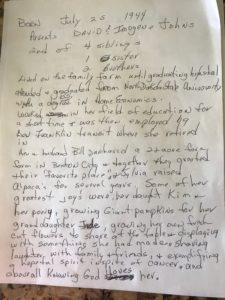 BORN July 25 1944
Parents DAVID & Imogene Johns
2nd of 4 siblings
1 sister
2 brothers
Lived on the family farm until graduating highschool
attended & graduated from North Dakota State University
with a degree in Home Economics.
Worked in her field of education for
a short time & was then employed by
Lou Franklin where she retired
in
Her & husband Bill purchased a 2+ acre
farm in Benton City & together they created
their favorite place. Sylvia raised
Alpaca's for several years, Some of her
greatest joy's were her daught Kim &
her pony, growing Giant pumpkins for her
granddaughter Jade, growing her own
cut flowers to share at the table, displaying
with something she had made, sharing
laughter, with family & friends, & exemplifying
a hopeful spirit despite at cancer, and
above all Knowing God loves her.